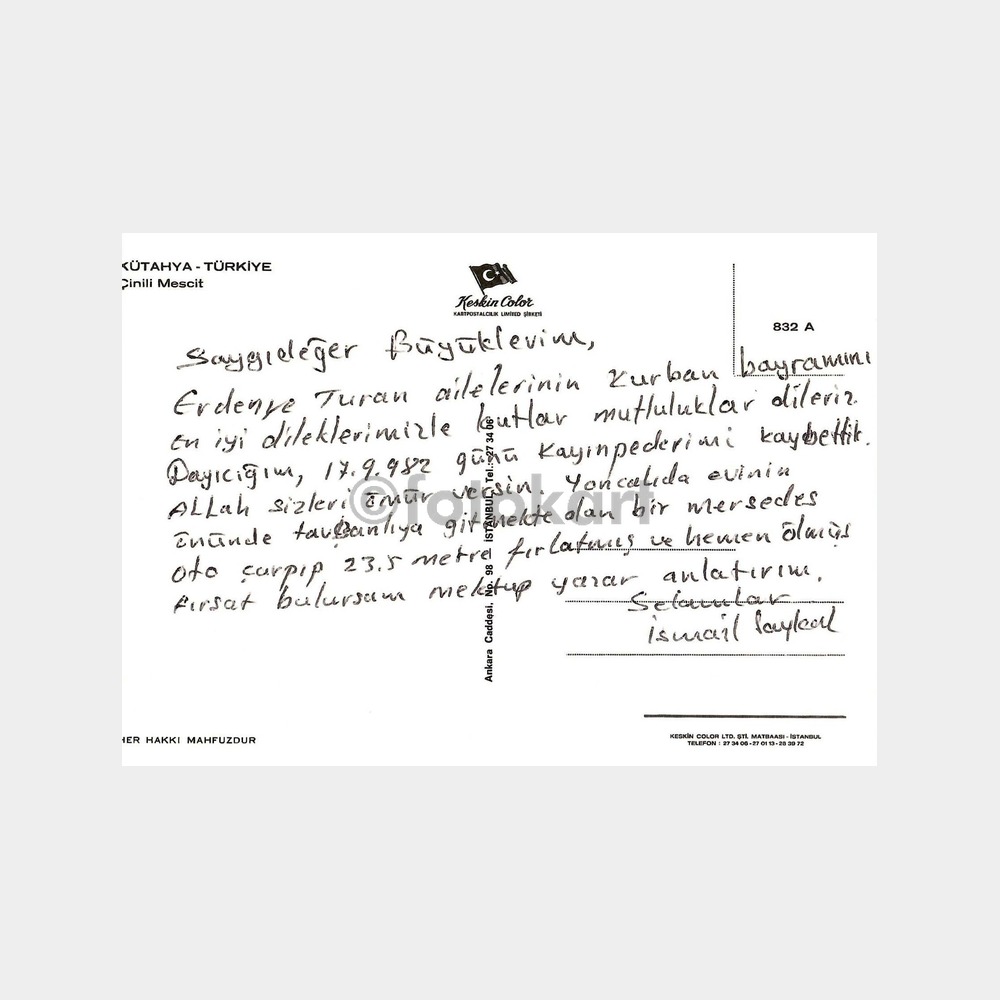 KÜTAHYA - TÜRKİYE
Çinili Mescit
Keskin Color
KARTPOSTALCILIK LIMITED ŞİRKETİ
832 A
Saygıdeğer Büyüklerim,
Erdenye Turan ailelerinin Kurban bayramını
en iyi dileklerimizle kutlar mutluluklar dileriz.
Dayıcığım, 17.9.982 günü Kayınpederimi kaybettik.
ALLah sizleri ömür versin. Yoncalıda evinin
önünde tavşanlıya gitmekte olan bir mersedes
oto çarpıp 23.5 metre fırlatmış ve hemen ölmüş
Fırsat bulursam mektup yazar anlatırım.
Selamlar
ismail
Ankara Caddesi, No. 98 - İSTANBUL Tel.: 27 34 06
©fotokart
HER HAKKI MAHFUZDUR
KESKİN COLOR LTD. ŞTİ. MATBAASI - İSTANBUL
TELEFON : 27 34 06 - 27 01 13 - 28 39 72